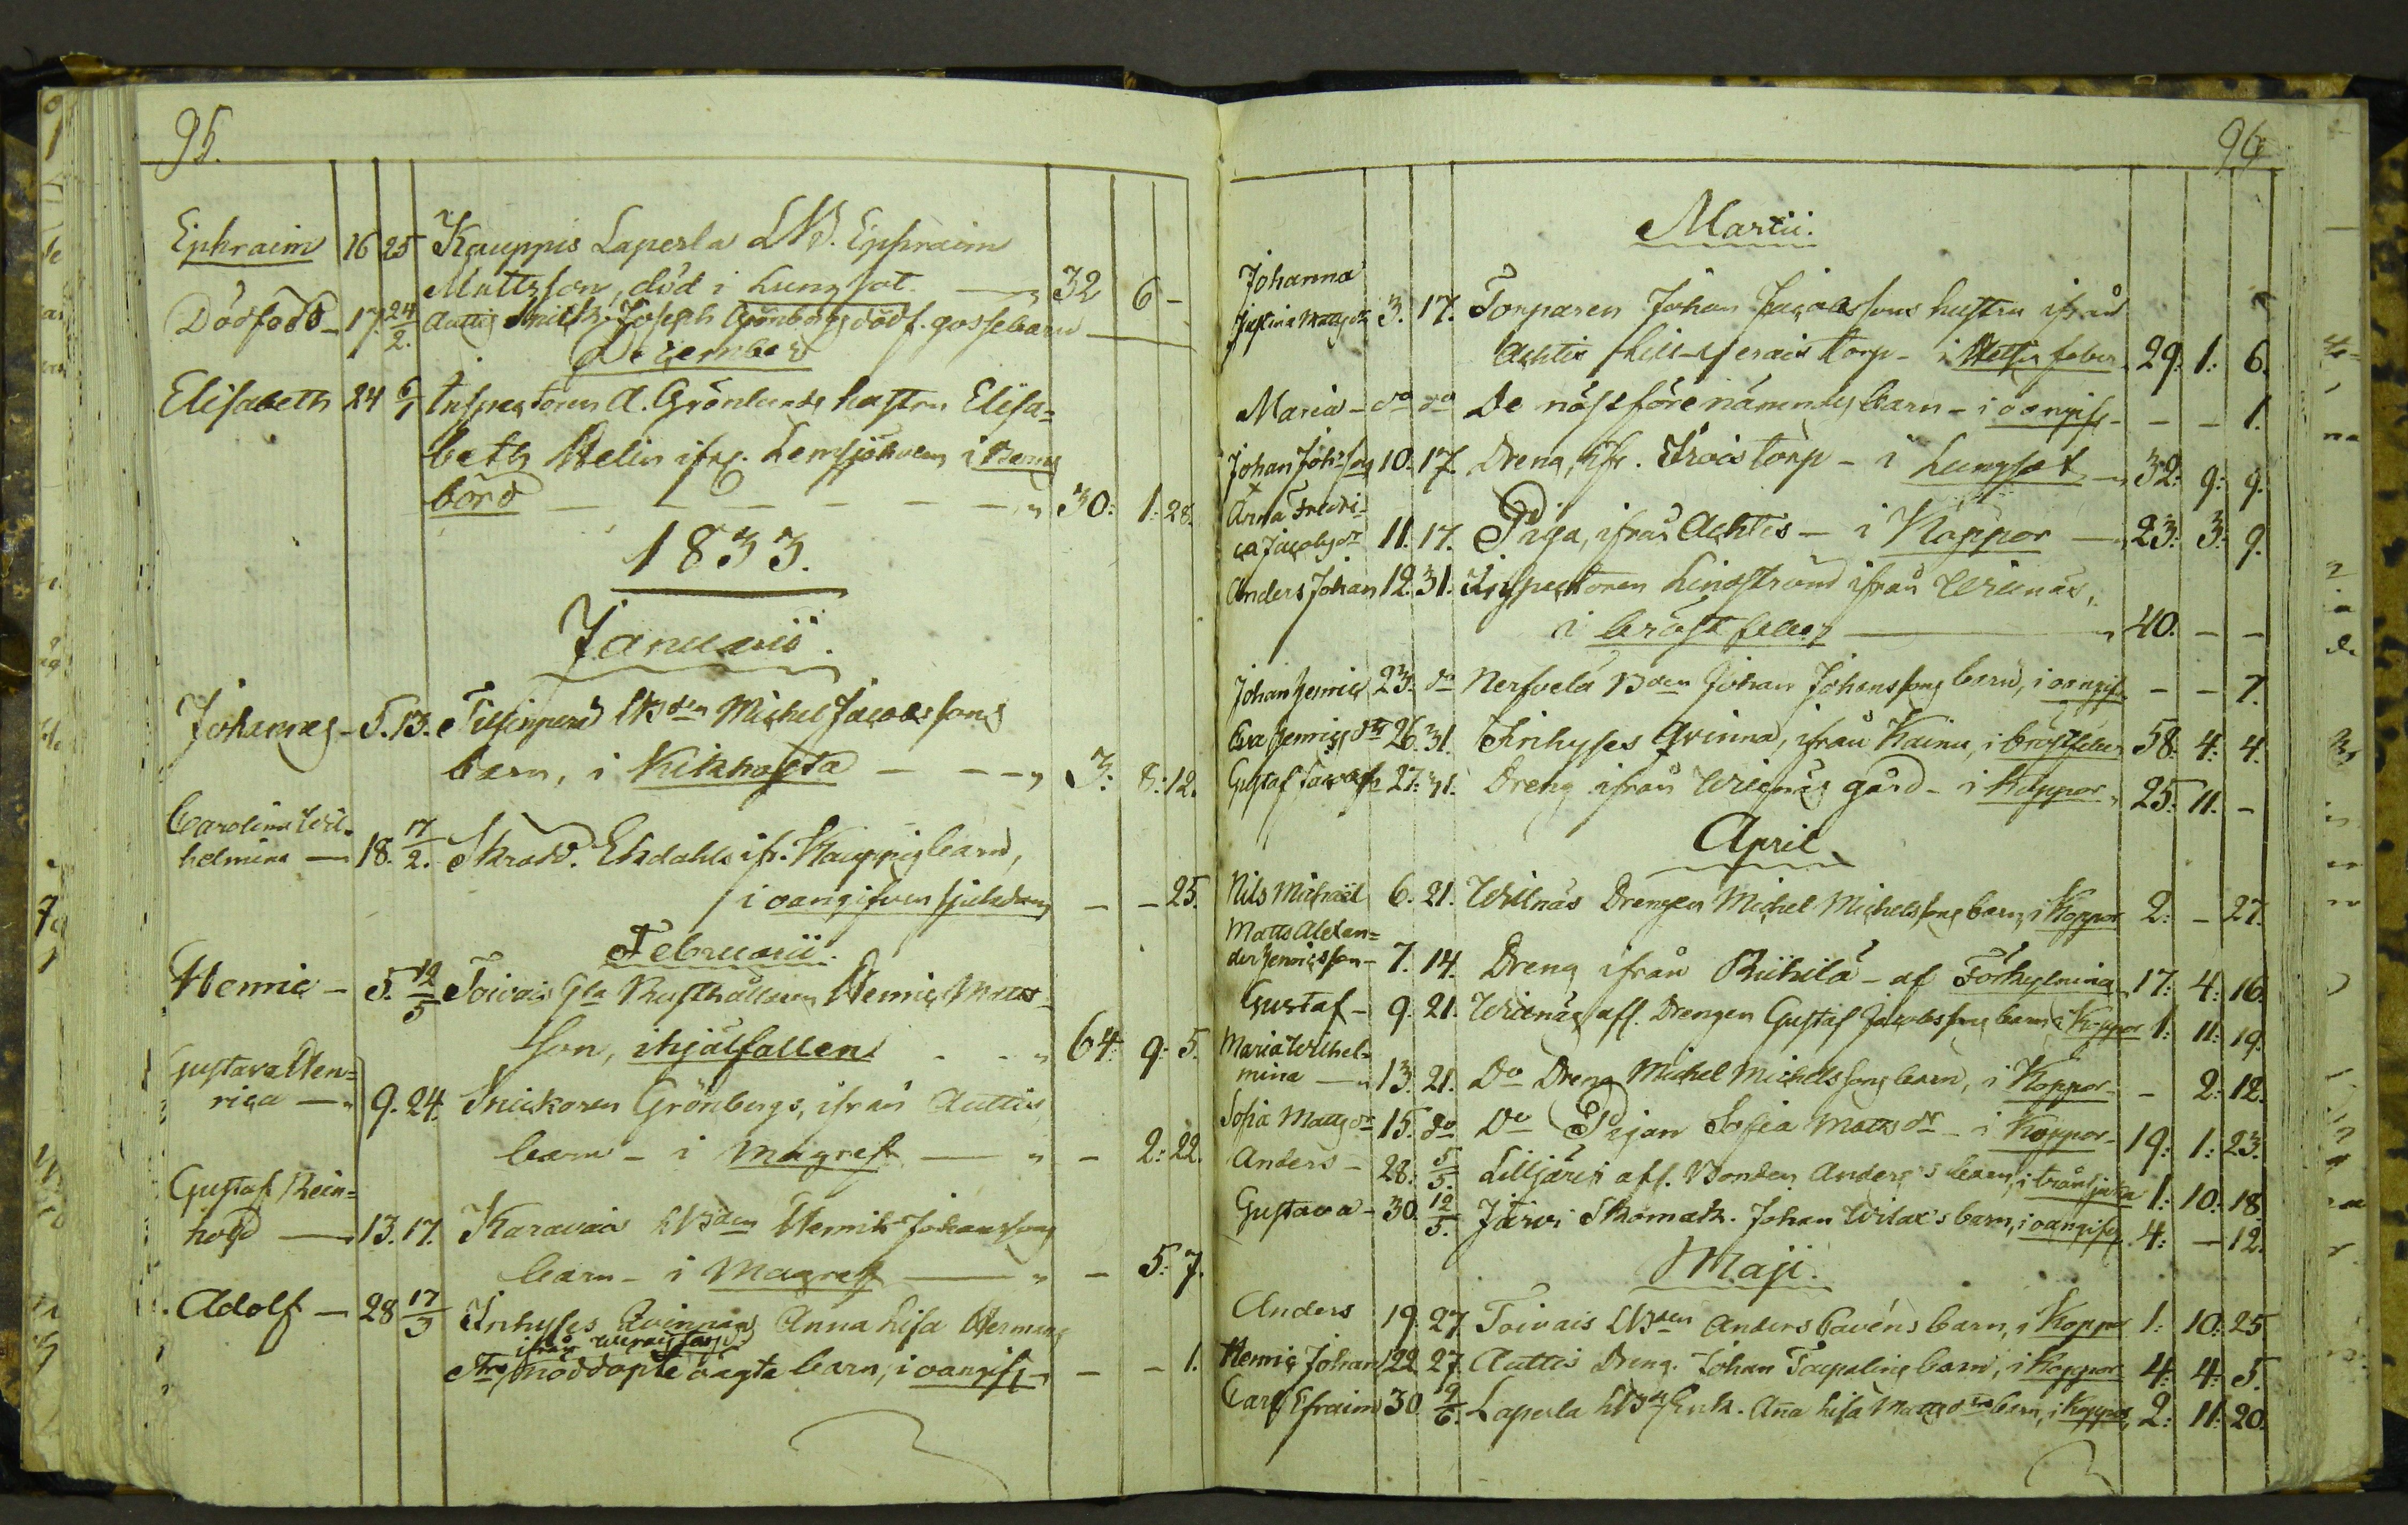 95.
Ephraim 16 25 Kauppis Laperla LB. Ephraim
Mattsson, död i Lungsot. — 32 6 -
Dödfödd - 17. 24/2. Auttis Snick. Joseph Grönbergs dödf. gossebarn -
December
Elisabeth 24 6/1 Inspectoren A. Grönlunds hustru Elisa=
beth Helin ifr. Lemsjöholm i Barns
börd - - - - - 30: 1: 28.
1833.
Januarii.
Johannes - 5. 13. LBden Michel Jacobssons
barn, i Kikhosta - - - 3: 8: 12.
Carolina Wil=
helmina — 18. 17/2. Skradd. Ekdahls ifr. Kauppis barn,
i oangifven sjukdom - - 25.
Februarii.
Henric - 5. 12/5 Toivais Gla Rusthållaren Henric Matts
son, ihjälfallen - - 64: 9: 5.
Gustava Hen=
rica — 9. 24. Snickaren Grönbergs, ifrån Auttis
barn - i Magref — - 2: 22.
Gustaf Rein=
hold — 13. 17. Karavais LBden Henrik Johanssons
barn - i Magref — - 5: 7.
Adolf — 28 17/3 Inhyses Qvinnans Anna Lisa Hermans
ifrån
dotters, nöddöpte oägta barn, i oangif. - - 1.
96
Martii.
Johanna
Justina Matts dr 3. 17. Torparen Johan Jacobssons hustru ifrån
Achtis torp - i feber 29: 1: 6.
Maria - do do De näst förenämnds barn - i oangif. - - - 1.
Johan Joh:son 10. 17. Dreng, ifr. torp - i Lungsot - 32: 9: 9.
Anna Fredri=
ca Jacobs dr 11. 17. Piga, ifrån Achtis - i Koppor — 23: 3: 9.
Anders Johan 12. 31. Inspectoren Lindström ifrån Willnäs,
i bröstfeber — 40. - -
Johan Henric 23. do Nervela Bden Johan Johanssons barn, i oangif. - - 7.
Eva Henrics dr 26. 31. Inhyses Qvinna, ifrån Kainu, i bröstfeber 58: 4: 4.
Gustaf 27. 31. Dreng ifrån Willnäs gård - i Koppor - 25: 11. -
April
Nils Michael 6. 21. Willnäs Drengen Michel Michelssons barn, i Koppor 2: - 27.
Matts Alexan=
der Henricsson - 7. 14. Dreng ifrån Riihilä - af Förkylning 17: 4: 16.
Gustaf - 9. 21. Willnäs afl. Drengen Gustaf Jacobssons barn i Koppor 1: 11: 19.
Maria Wilhel=
mina — 13. 21. Do Dreng Michel Michelssons barn, i Koppor - - 2: 12.
Sofia Matts dr 15. do Do Pigan Sofia Matts dr - i Koppor - 19: 1: 23.
Anders - 28. 5/5. Lilljäris afl. Bonden Anders's barn, i 1: 10: 18.
Gustava - 30. 12/5. Järvi Skomak. Johan Wilax's barn, i oangif. 4: - 12.
Maji.
Anders 19. 27 Toivais LBden Anders Cavéns barn, i Koppor 1: 10: 25
Henric Johan 22 27. Auttis Dreng. Johan barn, i Koppor 4: 4: 5.
Carl Efraim 30. 9/6. Laperla LBs Enk. Aña Lisa Matts drs barn, i Koppor, 2: 11: 20.